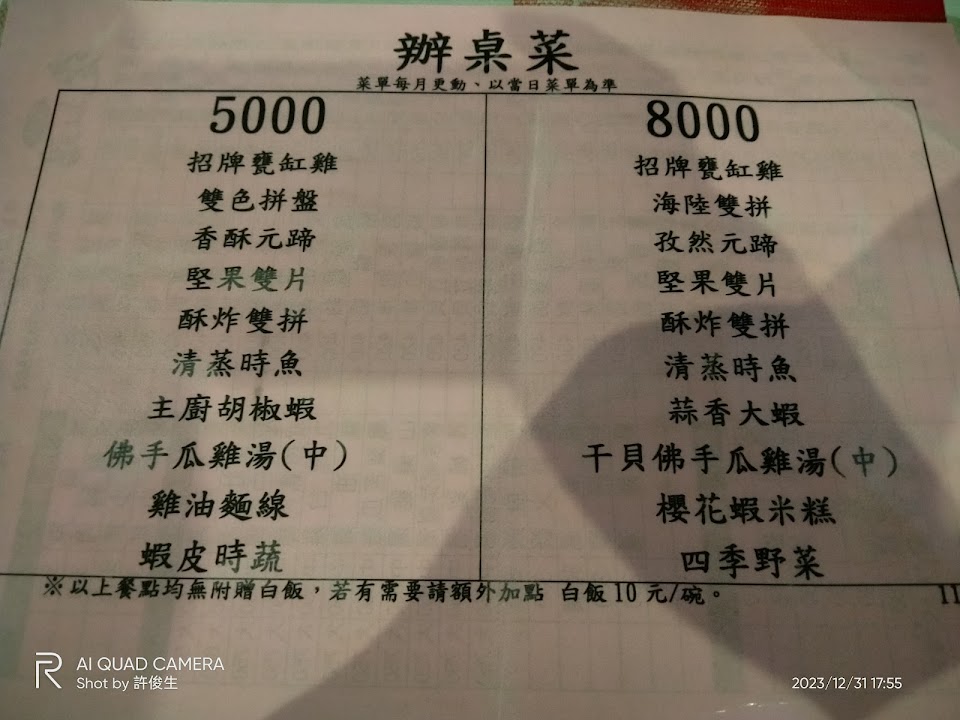 辦桌菜
菜單每月更動、以當日菜單為準
5000
招牌甕缸雞
雙色拼盤
香酥元蹄
堅果雙片
酥炸雙拼
清蒸時魚
主廚胡椒蝦
佛手瓜雞湯(中)
雞油麵線
蝦皮時蔬
8000
招牌甕缸雞
海陸雙拼
孜然元蹄
堅果雙片
酥炸雙拼
清蒸時魚
蒜香大蝦
干貝佛手瓜雞湯(中)
櫻花蝦米糕
四季野菜
※以上餐點均無附贈白飯，若有需要請額外加點 白飯10元/碗。
11
AI QUAD CAMERA
Shot by 許俊生
2023/12/31 17:55